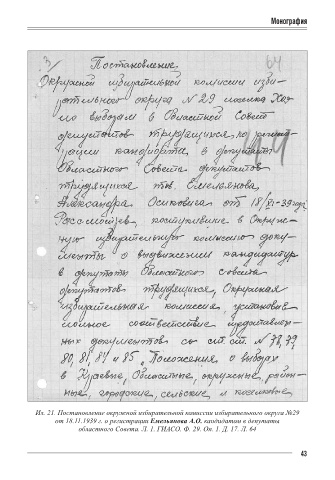 Монография
3/ 64
Постановление
Окружной избирательной комиссии изби-
рательного округа № 29 поселка
по выборам в Областной Совет
депутатов трудящихся, по регист-
рации кандидата в депутаты
Областного Совета депутатов
трудящихся тов. Емельянова
Александра Осиповича от 18/XI-39 года
Рассмотрев, поступившие в Окруж-
ную избирательную комиссию доку-
менты о выдвижении кандидатур
в депутаты Областного совета
депутатов трудящихся, Окружная
избирательная комиссия, установив
полное соответствие представлен-
ных документов со ст. ст. № 78, 79,
80, 81, 84 и 85 „Положения о выборах
в Краевые, Областные, окружные, район-
ные, городские, сельские и поселковые,
Ил. 21. Постановление окружной избирательной комиссии избирательного округа №29
от 18.11.1939 г. о регистрации Емельянова А.О. кандидатом в депутаты
областного Совета. Л. 1. ГИАСО. Ф. 29. Оп. 1. Д. 17. Л. 64
43